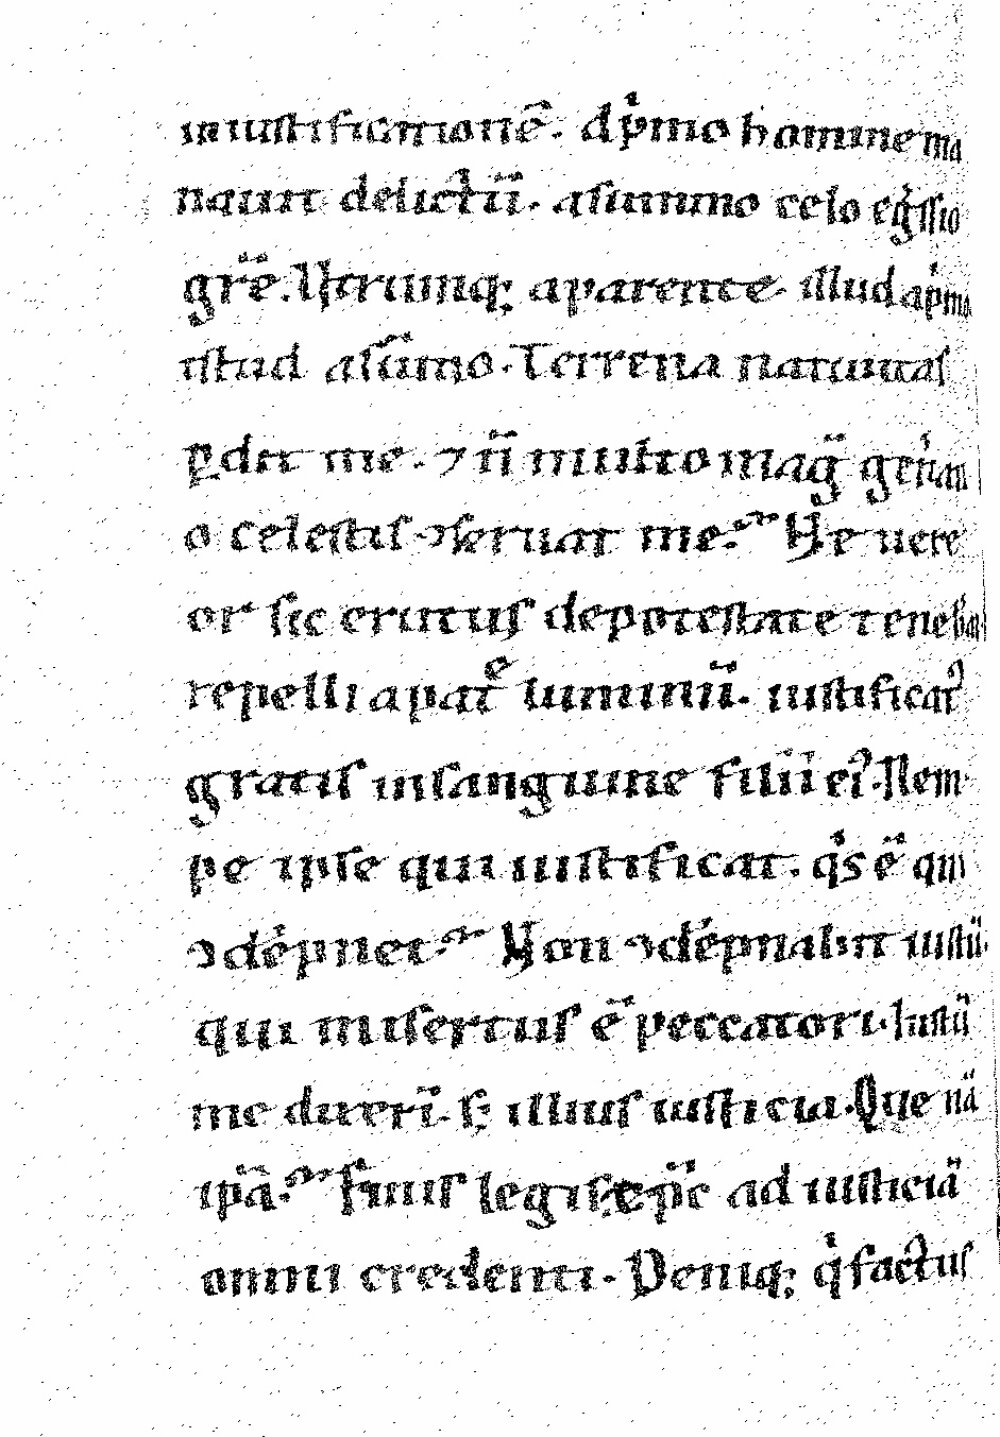 in iustificationē. de p̍mo homine ma
nauit delictṻ. a summo celo egressio
gr̄e. Utrumq; a parente illud a p̍mo
istud a sūmo. Terrena natiuitas
p̱dit me. ⁊ n̄ multo mag̃ gen̍ati
o celestis ꝯseruat me? He uere
or sic erutus de potestate teneb̍ar̄
repelli a patr̄e luminṻ. iustificatꝰ
gratis in sanguine filii eiꝰ. Nem
pe ipse qui iustificat. q̍s ē qui
ꝯdēpnet? Non ꝯdēpnabit iustṻ.
qui misertus ē peccatori. Iustṻ
me dixerī. sꝫ illius iusticia. Que nā̈
ip̄a? Finis legis xp̄c ad iusticiā̈
omni credenti. Deniq; q̍ factus